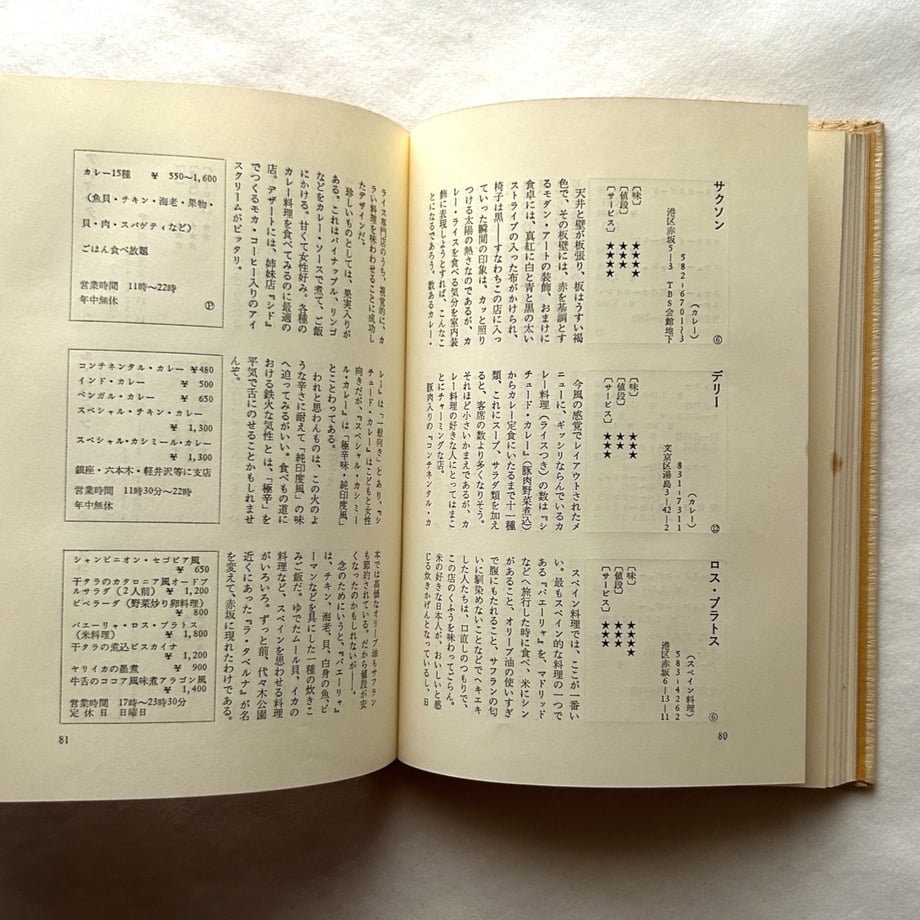 サクソン
(カレー) ⑥
582-6701~3
港区赤坂5-3 TBS会館地下
〔味〕 ★★★★
〔値段〕 ★★★
〔サービス〕 ★★★★
天井と壁が板張り、板はうすい褐
色で、その板壁には、赤を基調とす
るモダン・アートの装飾、おまけに
食卓には、真紅に白と青と黒の太い
ストライプの入った布がかけられ、
椅子は黒――すなわちこの店に入っ
ていった瞬間の印象は、カッと照り
つける太陽の熱さなのであるが、カ
レー・ライスを食べる気分を室内装
飾に表現しようとすれば、こんなこ
とになるであろう。数あるカレー・
ライス専門店のうち、視覚的に、カ
ラい料理を味わわせることに成功し
たデザインだ。
珍しいものとしては、果実入りが
ある。これはパイナップル、リンゴ
などをカレー・ソースで煮て、ご飯
にかける。甘くて女性好み。各種の
カレー料理を食べてみるのに最適の
店。デザートには、姉妹店『シド』
でつくるモカ・コーヒー入りのアイ
スクリームがピッタリ。
カレー15種 ¥ 550~1,600
(魚貝・チキン・海老・果物・
貝・肉・スパゲティなど)
ごはん食べ放題
営業時間 11時~22時
年中無休 Ⓟ
デリー
(カレー) ⑫
831-7311
文京区湯島3-42-2
〔味〕 ★★★
〔値段〕 ★★★
〔サービス〕 ★★★
今風の感覚でレイアウトされたメ
ニューに、ギッシリならんでいるカ
レー料理(ライスつき)の数は『シ
チュード・カレー』(豚肉野菜煮込)
からカレー定食にいたるまで十一種
類、これにスープ、サラダ類を加え
ると、客席の数より多くなりそう。
それほど小さいかまえであるが、カ
レー料理の好きな人にとってはまこ
とにチャーミングな店。
豚肉入りの『コンチネンタル・カ
レー』は「一般向き」とあり、『シ
チュード・カレー』はこどもと女性
向きだが、『スペシャル・カシミー
ル・カレー』は「極辛味・純印度風」
とことわってある。
われと思わんものは、この火のよ
うな辛さに耐えて「純印度風」の味
へ迫ってみるがいい。食べもの道に
おける鉄火な気性とは、「極辛」を
平気で舌にのせることかもしれませ
んぞ。
コンチネンタル・カレー ¥480
インド・カレー ¥ 500
ベンガル・カレー ¥ 650
スペシャル・チキン・カレー
¥ 1,300
スペシャル・カシミール・カレー
¥ 1,300
銀座・六本木・軽井沢等に支店
営業時間 11時30分~22時
年中無休
ロス・プラトス
(スペイン料理) ⑥
583-4262
港区赤坂6-13-11
〔味〕 ★★★★
〔値段〕 ★★★
〔サービス〕 ★★★
スペイン料理では、ここが一番い
い。最もスペイン的な料理の一つで
ある『パエーリャ』を、マドリッド
などへ旅行した時に食べ、米にシン
があること、オリーブ油の使いすぎ
で腹にもたれること、サフランの匂
いに馴染めないことなどでヘキエキ
した人たちは、口直しのつもりで、
この店のくふうを味わってごらん。
米の好きな日本人が、おいしいと感
じる炊きかげんとなっているし、日
本では高価なオリーブ油もサフラン
も節約されている。だから値段が安
くなったのかもしれないが――。
念のためにいうと、『パエーリャ』
は、チキン、海老、貝、白身の魚、ピ
ーマンなどを具にした一種の炊きこ
みご飯だ。ゆでたムール貝、イカの
料理など、スペインを思わせる料理
がいろいろ。ずっと前、代々木公園
近くにあった『ラ・タベルナ』が名
を変えて、赤坂に現れたわけである。
シャンピニオン・セゴビア風
¥ 650
干タラのカタロニア風オードブ
ルサラダ(2人前) ¥ 1,200
ピペラーダ(野菜炒り卵料理)
¥ 800
パエーリャ・ロス・プラトス
(米料理) ¥ 1,800
干タラの煮込ビスカイナ
¥ 1,200
ヤリイカの墨煮 ¥ 900
牛舌のココア風味煮アラゴン風
¥ 1,400
営業時間 17時~23時30分
定休日 日曜日
80
81